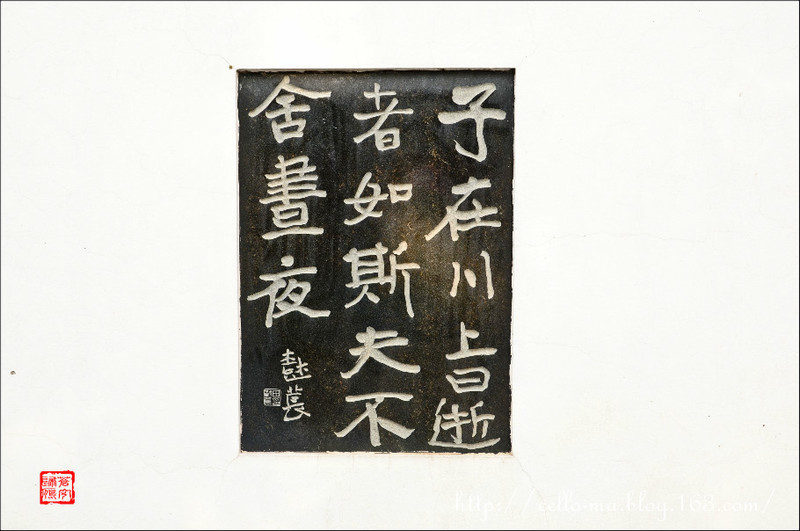 子在川上曰逝
者如斯夫不
舍晝夜
http://cello-ma.blog.163.com/